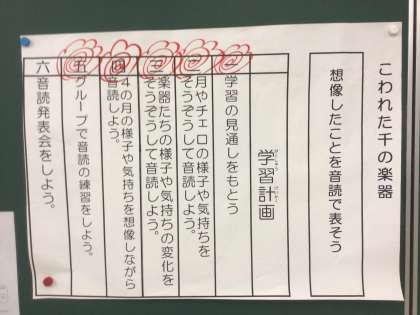 こわれた千の楽器
想像したことを音読で表そう
学習計画
がくしゅうけいかく
一
学習の見通しをもとう
二
月やチェロの様子や気持ちを
そうぞうして音読しよう。
三
楽器たちの様子や気持ちの変化を
そうぞうして音読しよう。
四
4の月の様子や気持ちを想像しながら
音読しよう。
五
グループで音読の練習をしよう。
六
音読発表会をしよう。